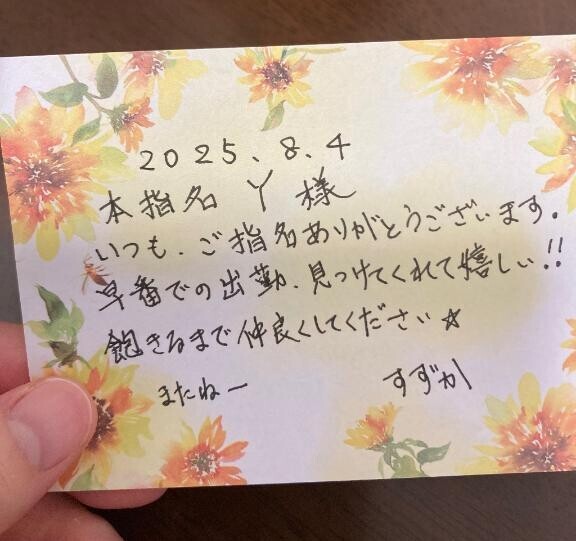 2025、8、4
本指名 Y 様
いつも、ご指名ありがとうございます。
早番での出勤、見つけてくれて嬉しい!!
飽きるまで仲良くしてください☆
またねー
すずか